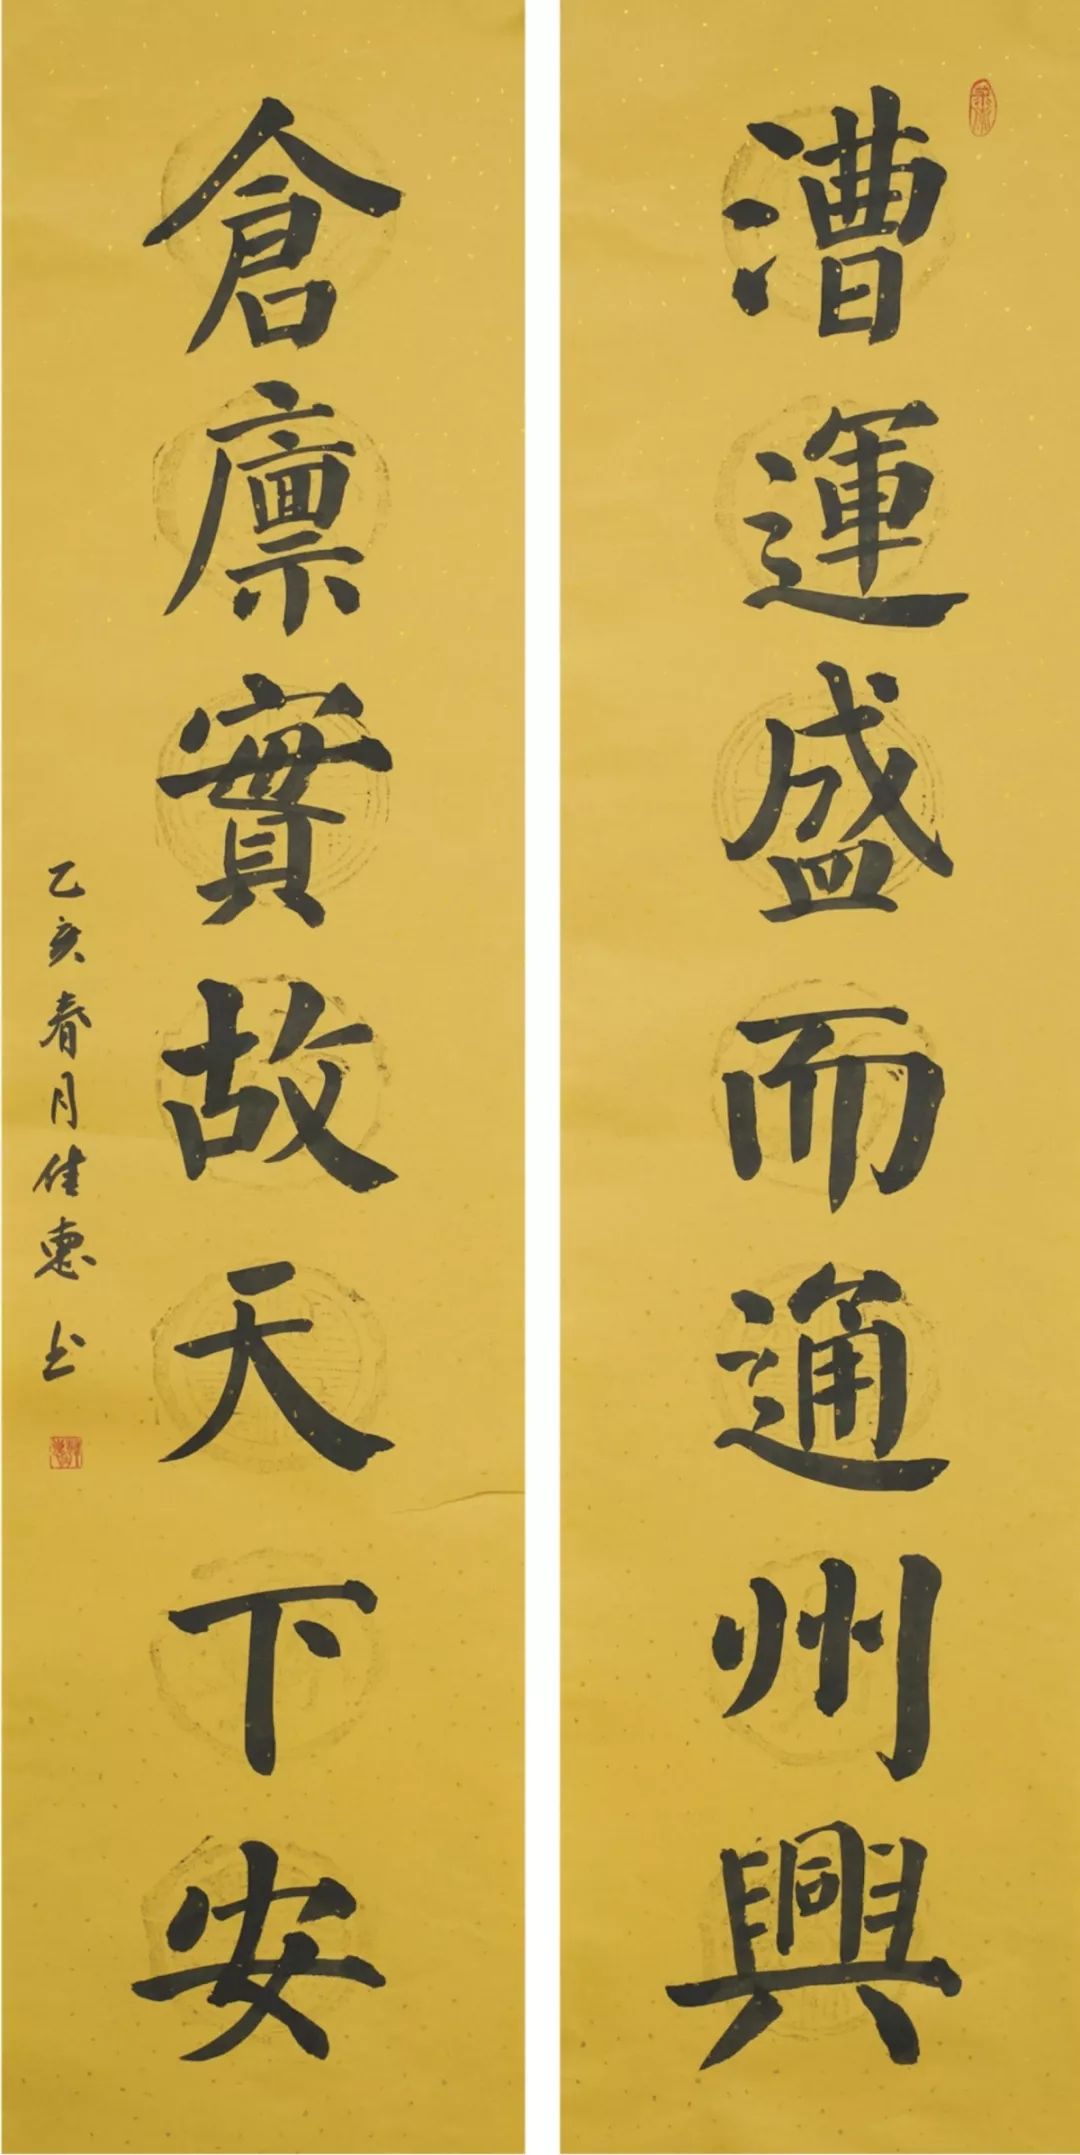 漕運盛而通州興
倉廪實故天下安
乙亥春月佳惠书